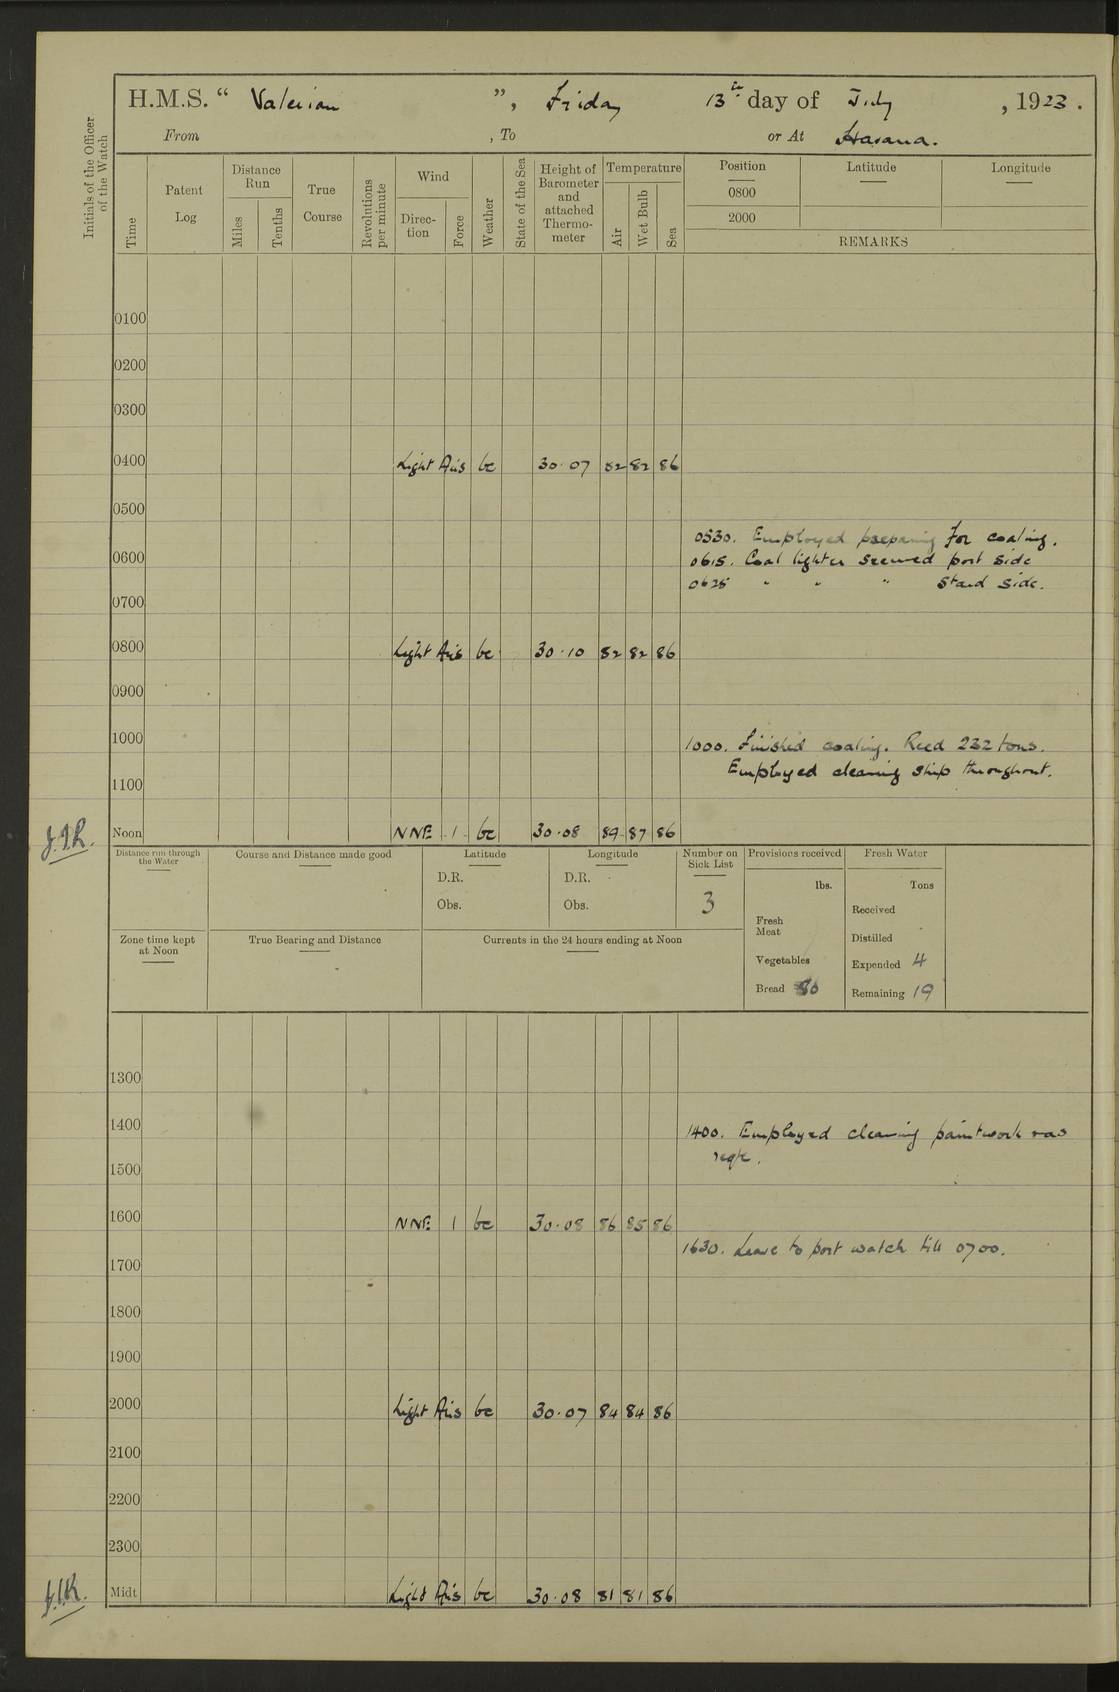 H.M.S. “ Valerian ”, Friday 13th day of July , 1923 .
From , To or At Havana.
Initials of the Officer of the Watch
Time Patent Log Distance Run Miles Tenths True Course Revolutions per minute Wind Direc-tion Force Weather State of the Sea Height of Barometer and attached Thermo-meter Temperature Air Wet Bulb Sea Position Latitude Longitude
0800
2000
REMARKS
0100
0200
0300
0400 Light Airs bc 30.07 82 82 86
0500
0530. Employed preparing for coaling.
0600 0615. Coal lighter secured port side
0625 " " " Starbd side.
0700
0800 Light Airs bc 30.10 82 82 86
0900
1000 1000. Finished coaling. Recd 232 tons.
Employed cleaning ship throughout.
1100
Noon NNE 1 bc 30.08 89 87 86
Distance run through the Water Course and Distance made good Latitude Longitude Number on Sick List Provisions received Fresh Water
D.R. D.R. lbs. Tons
Obs. Obs. 3 Received
Fresh Meat
Distilled
Zone time kept at Noon True Bearing and Distance Currents in the 24 hours ending at Noon
Vegetables Expended 4
Bread 80 Remaining 19
1300
1400 1400. Employed cleaning paintwork & as
reqte.
1500
1600 NNE 1 bc 30.08 86 85 86
1630. Leave to port watch till 0700.
1700
1800
1900
2000 Light Airs bc 30.07 84 84 86
2100
2200
2300
Midt Light Airs bc 30.08 81 81 86